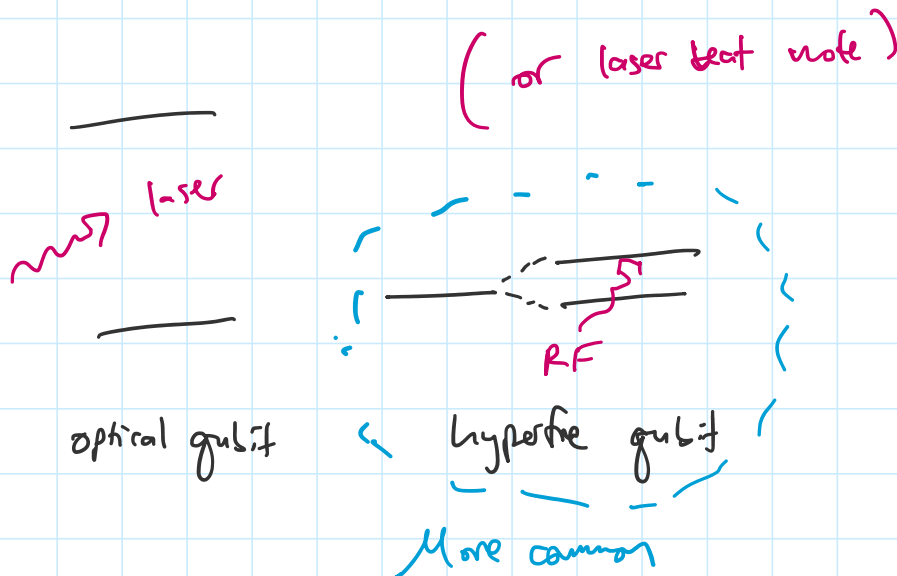 (or laser beat note)
laser
RF
optical qubit
hyperfine qubit
More common